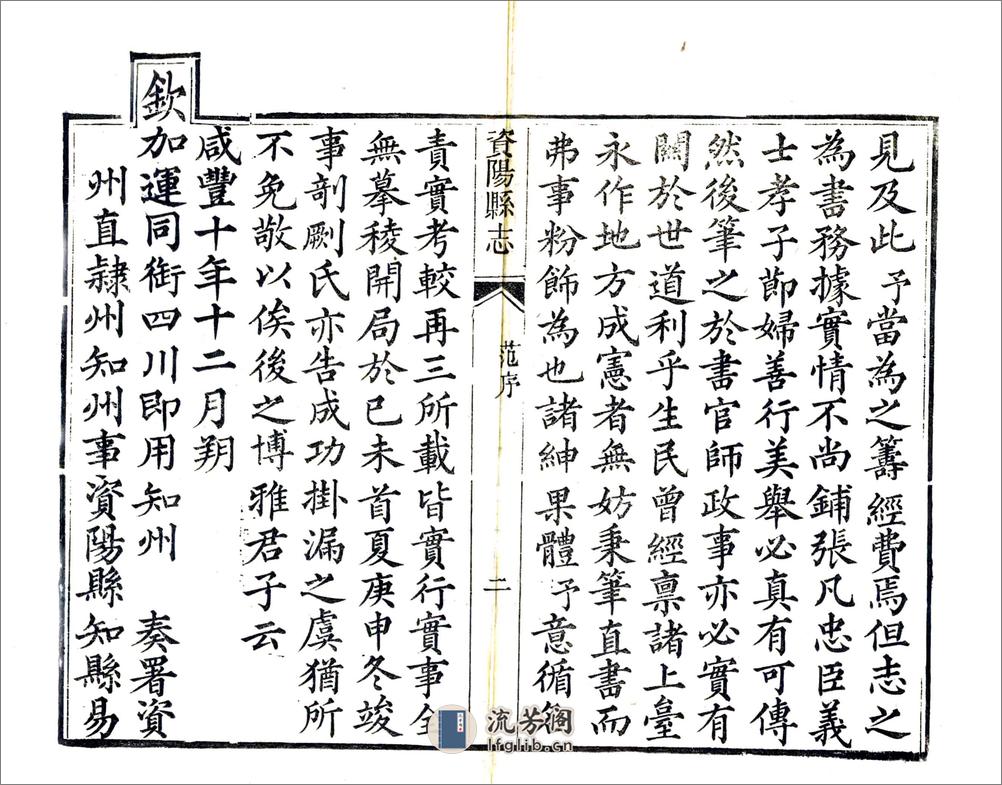 見及此予當為之籌經費焉但志之
為書務據實情不尚鋪張凡忠臣義
士孝子節婦善行美舉必真有可傳
然後筆之於書官師政事亦必實有
關於世道利乎生民曾經禀諸上臺
永作地方成憲者無妨秉筆直書而
弗事粉飾為也諸紳果體予意循
資陽縣志
范序
二
責實考較再三所載皆實行實事全
無摹稜開局於己未首夏庚申冬竣
事剞劂氏亦告成功掛漏之虞猶所
不免敬以俟後之博雅君子云
咸豐十年十二月朔
欽加運同銜四川即用知州 奏署資
州直隸州知州事資陽縣知縣易
流芳閣
lfglib.cn